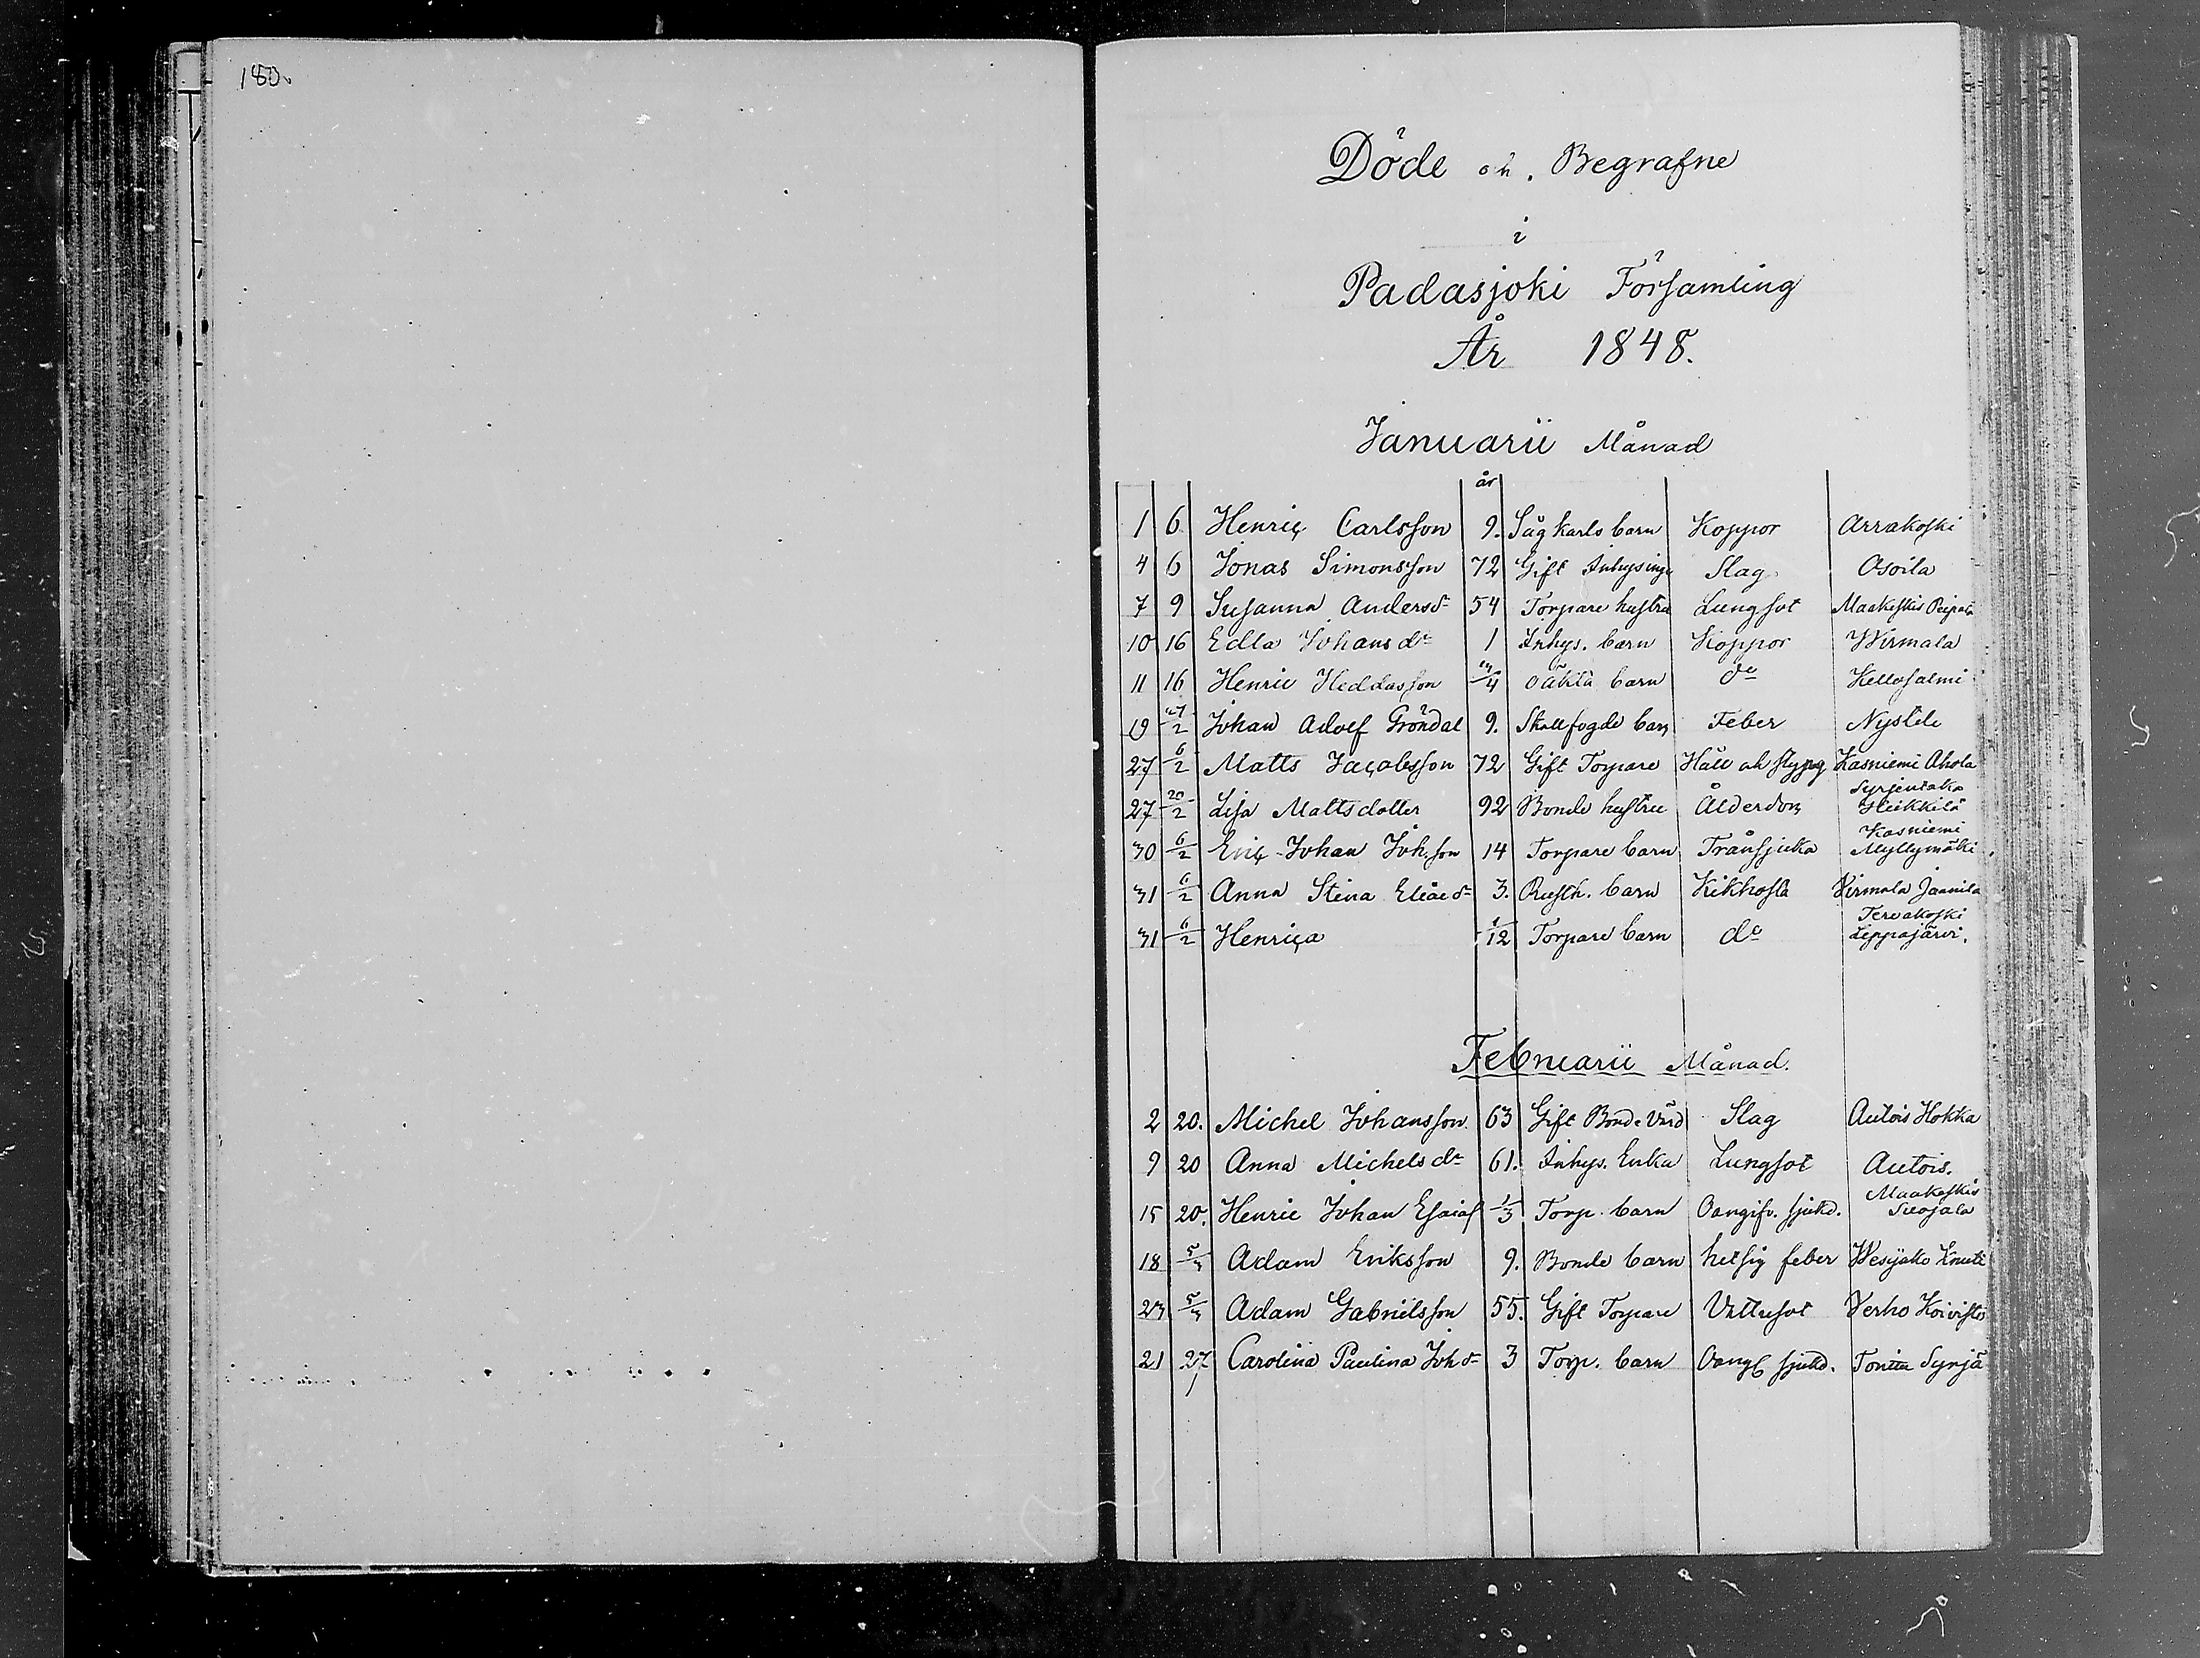 180.
Döde och Begrafne
i
Padasjoki Församling
År 1848.
Januarii Månad
år
1 6 Henric Carlsson 9. Såg karls barn Koppor Arrakoski
4 6 Jonas Simonsson 72 Gift Inhysing Slag Osoila
7 9 Susanna Andersdr 54 Torpare hustru Lungsot Maakeskis
10 16 Edla Johansdr 1 Inhys. barn Koppor Wirmala
11 16 Henric Heddasson /4 oäkta barn do Kellosalmi
19 27/2 Johan Adolf Gröndal 9. Skallfogde barn Feber Nystele
27 6/2 Matts Jacobsson 72 Gift Torpare Håll och styng Kasniemi Ahola
27 20/2 Lisa Mattsdotter 92 Bonde hustru Ålderdom Syrjentaka Heikkilä
30 6/2 Eric Johan Joh.son 14 Torpare barn Trånsjuka Kasniemi Myllymäki
31 6/2 Anna Stina Eliædr 3. Rusth. barn Kikhosta Virmala Jaanila
31 6/2 Henrica 1/12 Torpare barn do Tervakoski Leppäjärvi.
Februarii Månad.
2 20. Michel Johansson 63 Gift Bonde Slag Autois Hokka
9 20 Anna Michelsdr 61. Inhys. Enka Lungsot Autois.
15 20. Henric Johan Esaias 1/3 Torp. barn Oangifv. sjukd. Maakeskis
18 5/3 Adam Eriksson 9. Bonde barn hetsig feber Wesijako Knuti
23 5/3 Adam Gabrielsson 55. Gift Torpare Vattusot Verho Koivisto
21 27/ Carolina Paulina Johdr 3 Torp. barn Oang sjukd. Torittu Syrjä